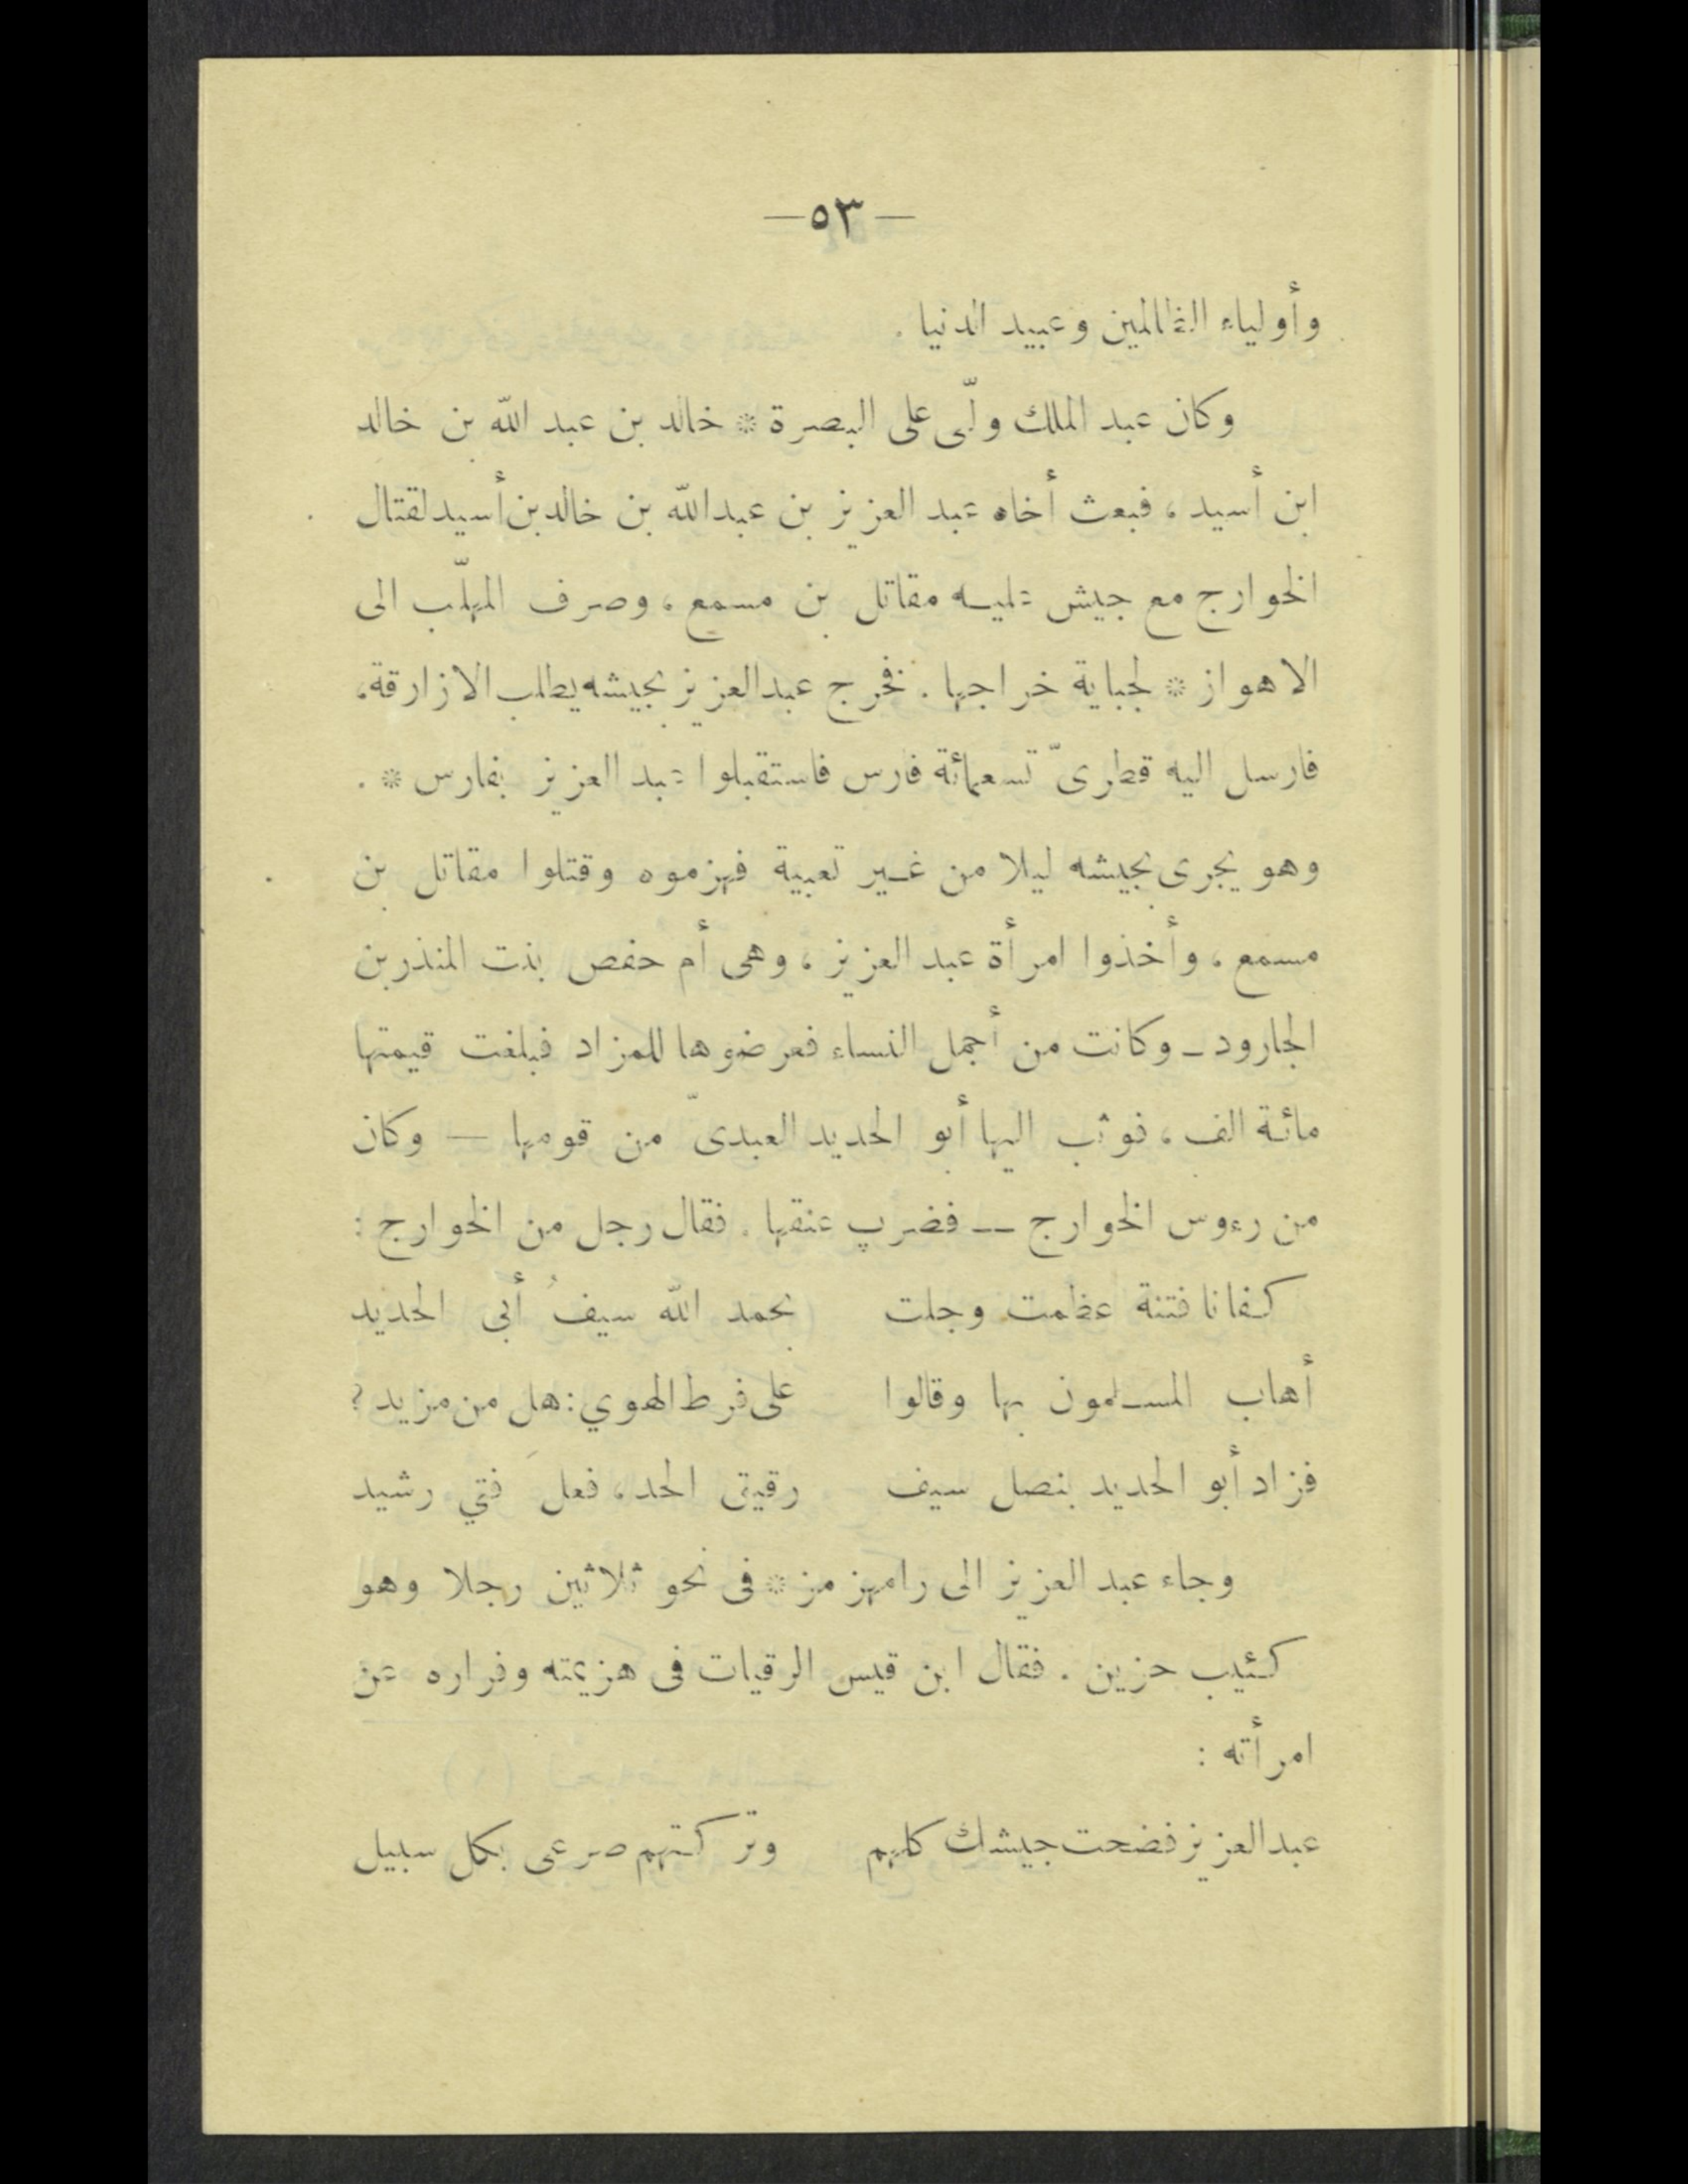 —٥٣—
وأولياء الظالمين وعبيد الدنيا .
وكان عبد الملك ولّى على البصرة * خالد بن عبد الله بن خالد
ابن أسيد ، فبعث أخاه عبد العزيز بن عبد الله بن خالد بن أسيد لقتال
الخوارج مع جيش عليه مقاتل بن مسمع ، وصرف المهلّب الى
الاهواز * لجباية خراجها . فخرج عبد العزيز بجيشه يطلب الازارقة ،
فارسل اليه قطرىّ تسعمائة فارس فاستقبلوا عبد العزيز بفارس * .
وهو يجرى بجيشه ليلا من غير تعبية فهزموه وقتلوا مقاتل بن
مسمع ، وأخذوا امرأة عبد العزيز ، وهى أم حفص بنت المنذر بن
الجارود ـ وكانت من أجمل النساء فعرضوها للمزاد فبلغت قيمتها
مائة الف ، فوثب اليها أبو الحديد العبدىّ من قومها — وكان
من رءوس الخوارج — فضرب عنقها . فقال رجل من الخوارج :
كفانا فتنة عظمت وجلت بحمد الله سيفُ أبى الحديد
أهاب المسلمون بها وقالوا على فرط الهوي : هل من مزيد ؟
فزاد أبو الحديد بنصل سيف رقيق الحد ، فعلَ فتي رشيد
وجاء عبد العزيز الى رامهرمز * فى نحو ثلاثين رجلا وهو
كئيب حزين . فقال ابن قيس الرقيات فى هزيمته وفراره عن
امرأته :
عبد العزيز فضحت جيشك كلهم وتركتهم صرعى بكل سبيل